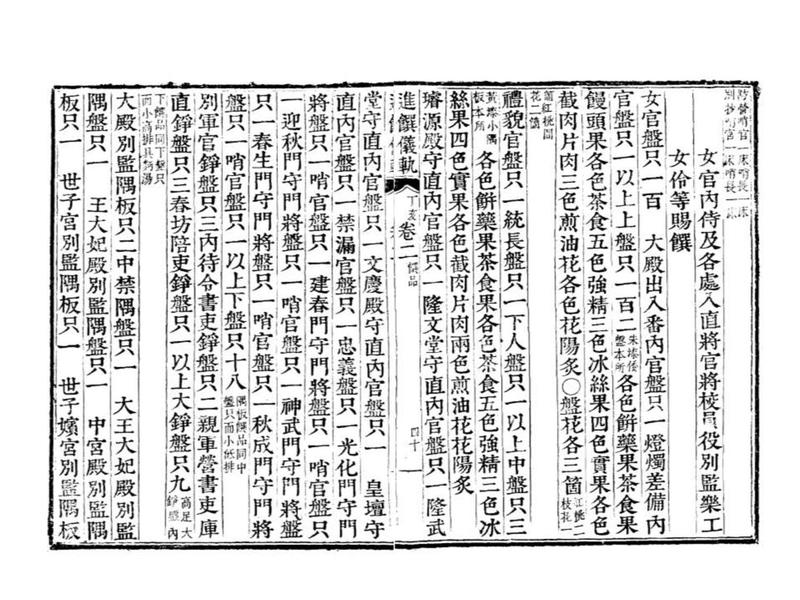 別抄哨官一床哨長一床
女官內侍及各處入直將官將校員役別監樂工
女伶等賜饌
女官盤只一百　大殿出入番內官盤只一燈燭差備內
官盤只一以上上盤只一百二朱漆倭盤本所各色餠藥果茶食果
饅頭果各色茶食五色強精三色冰絲果四色實果各色
截肉片肉三色煎油花各色花陽炙○盤花各三箇紅桃二枝花一
禮貌官盤只一統長盤只一下人盤只一以上中盤只三
黃漆小隅板本所各色餠藥果茶食果各色茶食五色強精三色冰
絲果四色實果各色截肉片肉兩色煎油花花陽炙
璿源殿守直內官盤只一隆文堂守直內官盤只一隆武
進饌儀軌　丁亥　卷二　饌品　四十
堂守直內官盤只一文慶殿守直內官盤只一　皇壇守
直內官盤只一禁漏官盤只一忠義盤只一光化門守門
將盤只一哨官盤只一建春門守門將盤只一哨官盤只
一迎秋門守門將盤只一哨官盤只一神武門守門將盤
只一春生門守門將盤只一哨官盤只一秋成門守門將
盤只一哨官盤只一以上下盤只十八隅板饌品同中盤只而小低排
別軍官錚盤只三內待令書吏錚盤只二親軍營書吏庫
直錚盤只三春坊陪吏錚盤只一以上大錚盤只九高足大錚盤內
下饌品同下盤只而小高排具鹽湯
大殿別監隅板只二中禁隅盤只一　大王大妃殿別監
隅盤只一　王大妃殿別監隅盤只一　中宮殿別監隅
板只一　世子宮別監隅板只一　世子嬪宮別監隅板